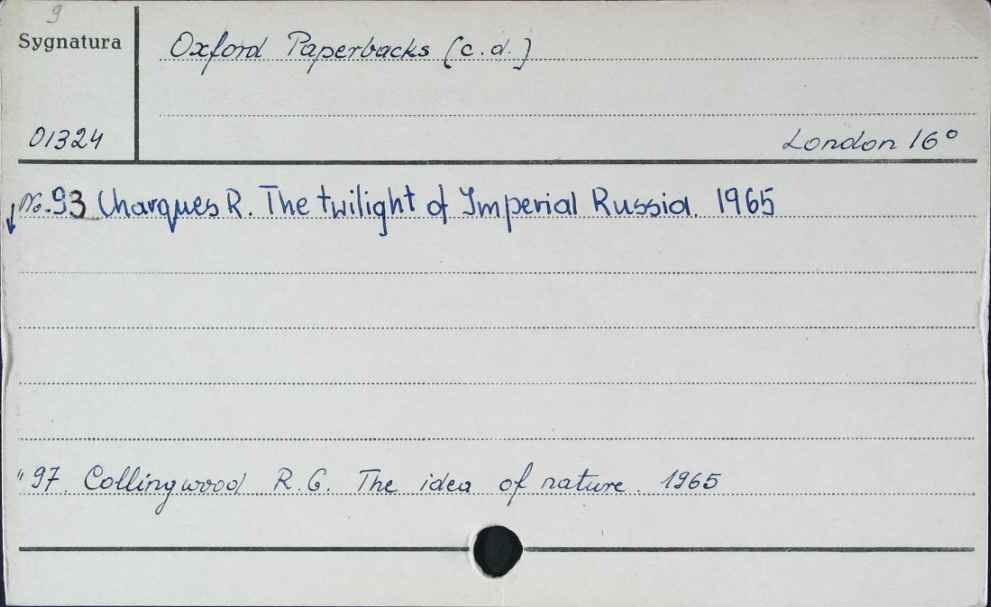 9
Sygnatura
Oxford Paperbacks [c.d.]
01324
London 16°
no. 93 Charques R. The twilight of Imperial Russia. 1965
" 97. Collingwood R.G. The idea of nature. 1965